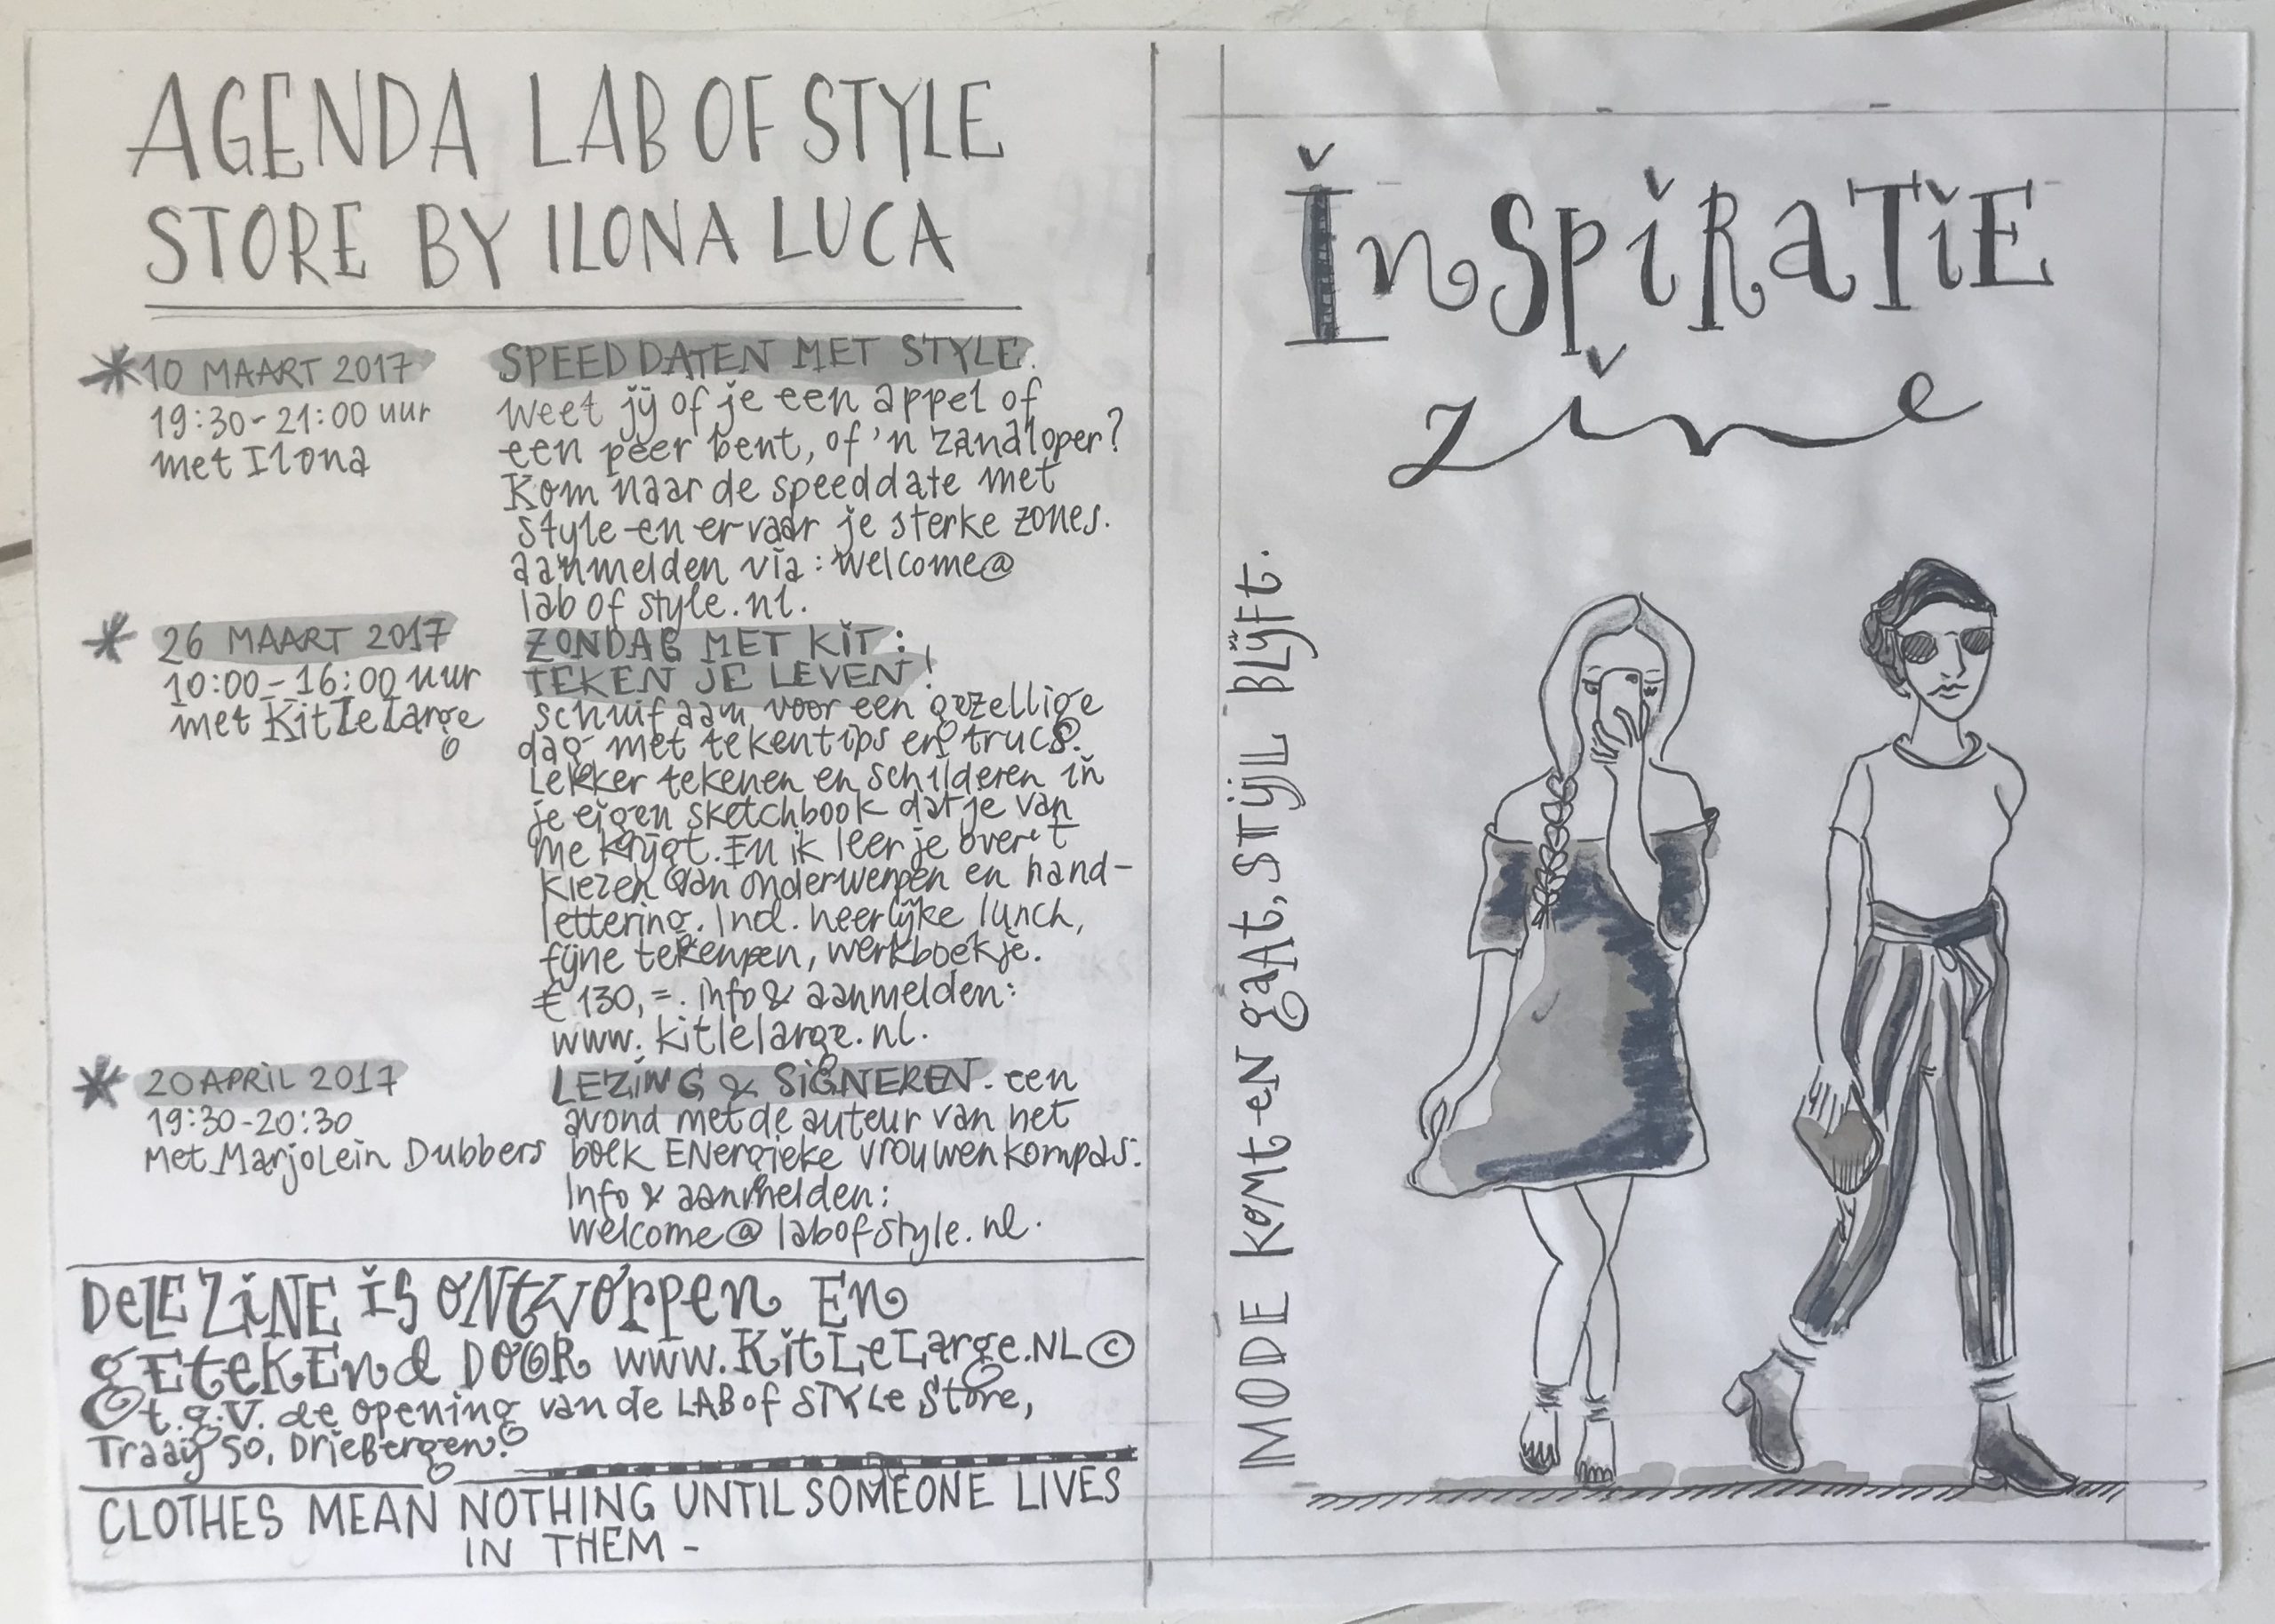 AGENDA LAB OF STYLE
STORE BY ILONA LUCA
10 MAART 2017
19:30-21:00 uur
met Ilona
SPEEDDATEN MET STYLE.
Weet jij of je een appel of
een peer bent, of 'n zandloper?
Kom naar de speeddate met
Style en ervaar je sterke zones.
aanmelden via: welcome@
labofstyle.nl.
26 MAART 2017
10:00-16:00 uur
met Kitlelarge
ZONDAG MET KIT:
TEKEN JE LEVEN!
schuif aan voor een gezellige
dag met tekentips en trucs.
Lekker tekenen en schilderen in
je eigen sketchbook dat je van
me krijgt. En ik leer je over 't
kiezen van onderwerpen en hand-
lettering. Incl. heerlijke lunch,
fijne tekenpen, werkboekje.
€ 130,=. info & aanmelden:
www.kitlelarge.nl.
20 APRIL 2017
19:30-20:30
Met Marjolein Dubbers
LEZING & SIGNEREN. een
avond met de auteur van het
boek ENergieke vrouwenkompas.
Info & aanmelden:
welcome@labofstyle.nl.
DeZE ZiNE is ONtworpen En
gEtekEnd DOOR www.KitLeLarge.NL ©
t.g.v. de opening van de LAB of STYLe Store,
Traaij 50, DrieBergen.
CLOTHES MEAN NOTHING UNTIL SOMEONE LIVES
IN THEM -
InSpiRaTiE
zine
MODE komt eN gaAt, STijL BLijft.